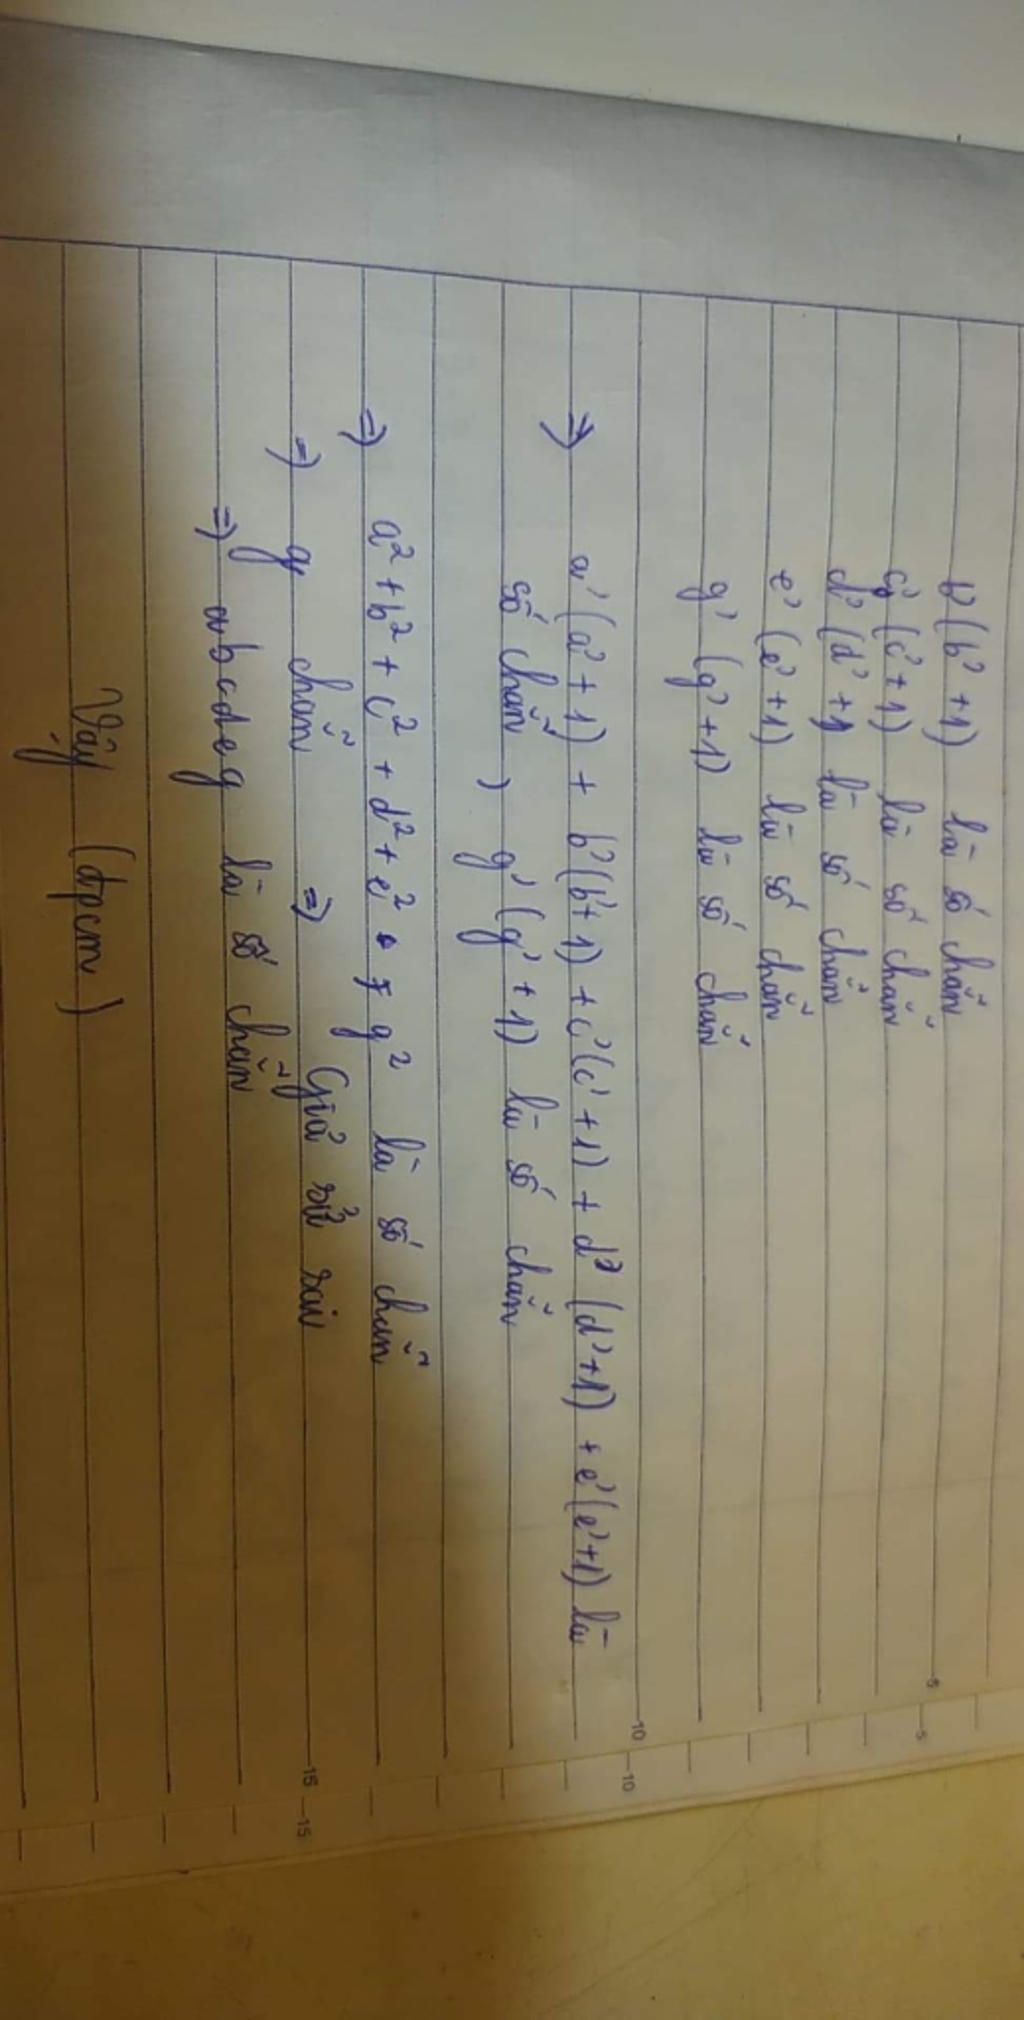 b'(b'+1) là số chẵn
c'(c'+1) là số chẵn
d'(d'+1) là số chẵn
e'(e'+1) là số chẵn
g'(g'+1) là số chẵn
10
=> a'(a'+1) + b'(b'+1) + c'(c'+1) + d'(d'+1) + e'(e'+1) là
số chẵn, g'(g'+1) là số chẵn
=> a² + b² + c² + d² + e² + g² là số chẵn
=> g chẵn => Giả sử sai
=> abcdeg là số chẵn
Vậy (đpcm)
5
5
10
15
15